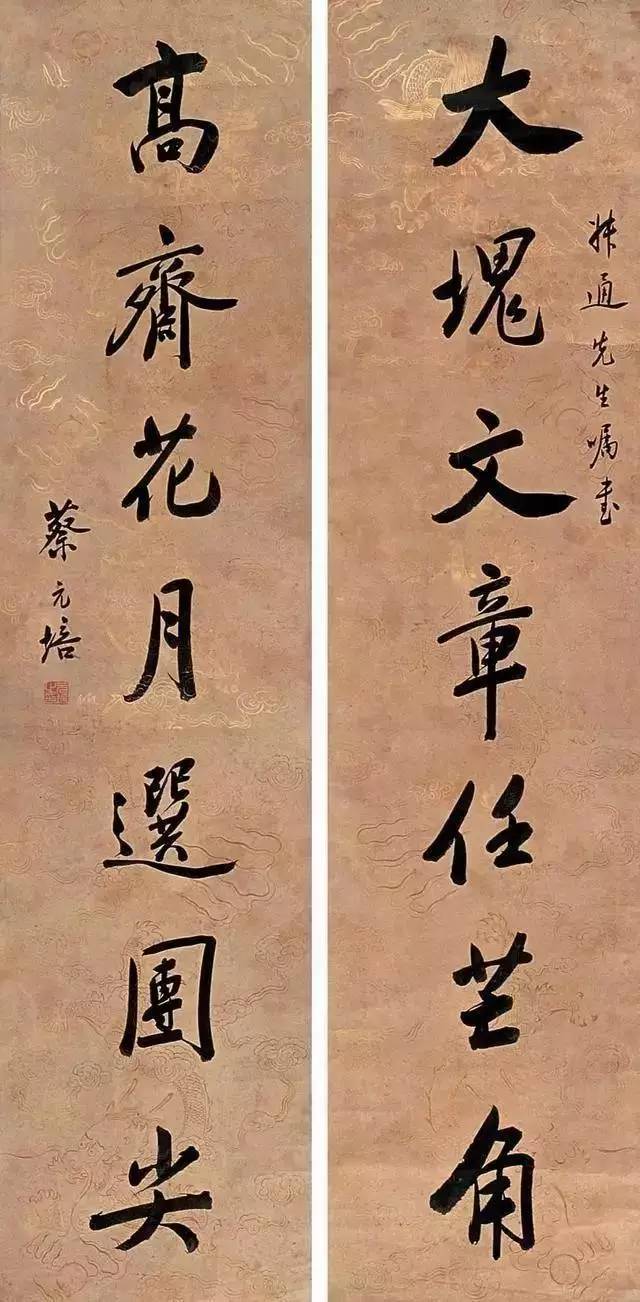 大塊文章任芒角
通先生嘱書
高齋花月選團尖
蔡元培